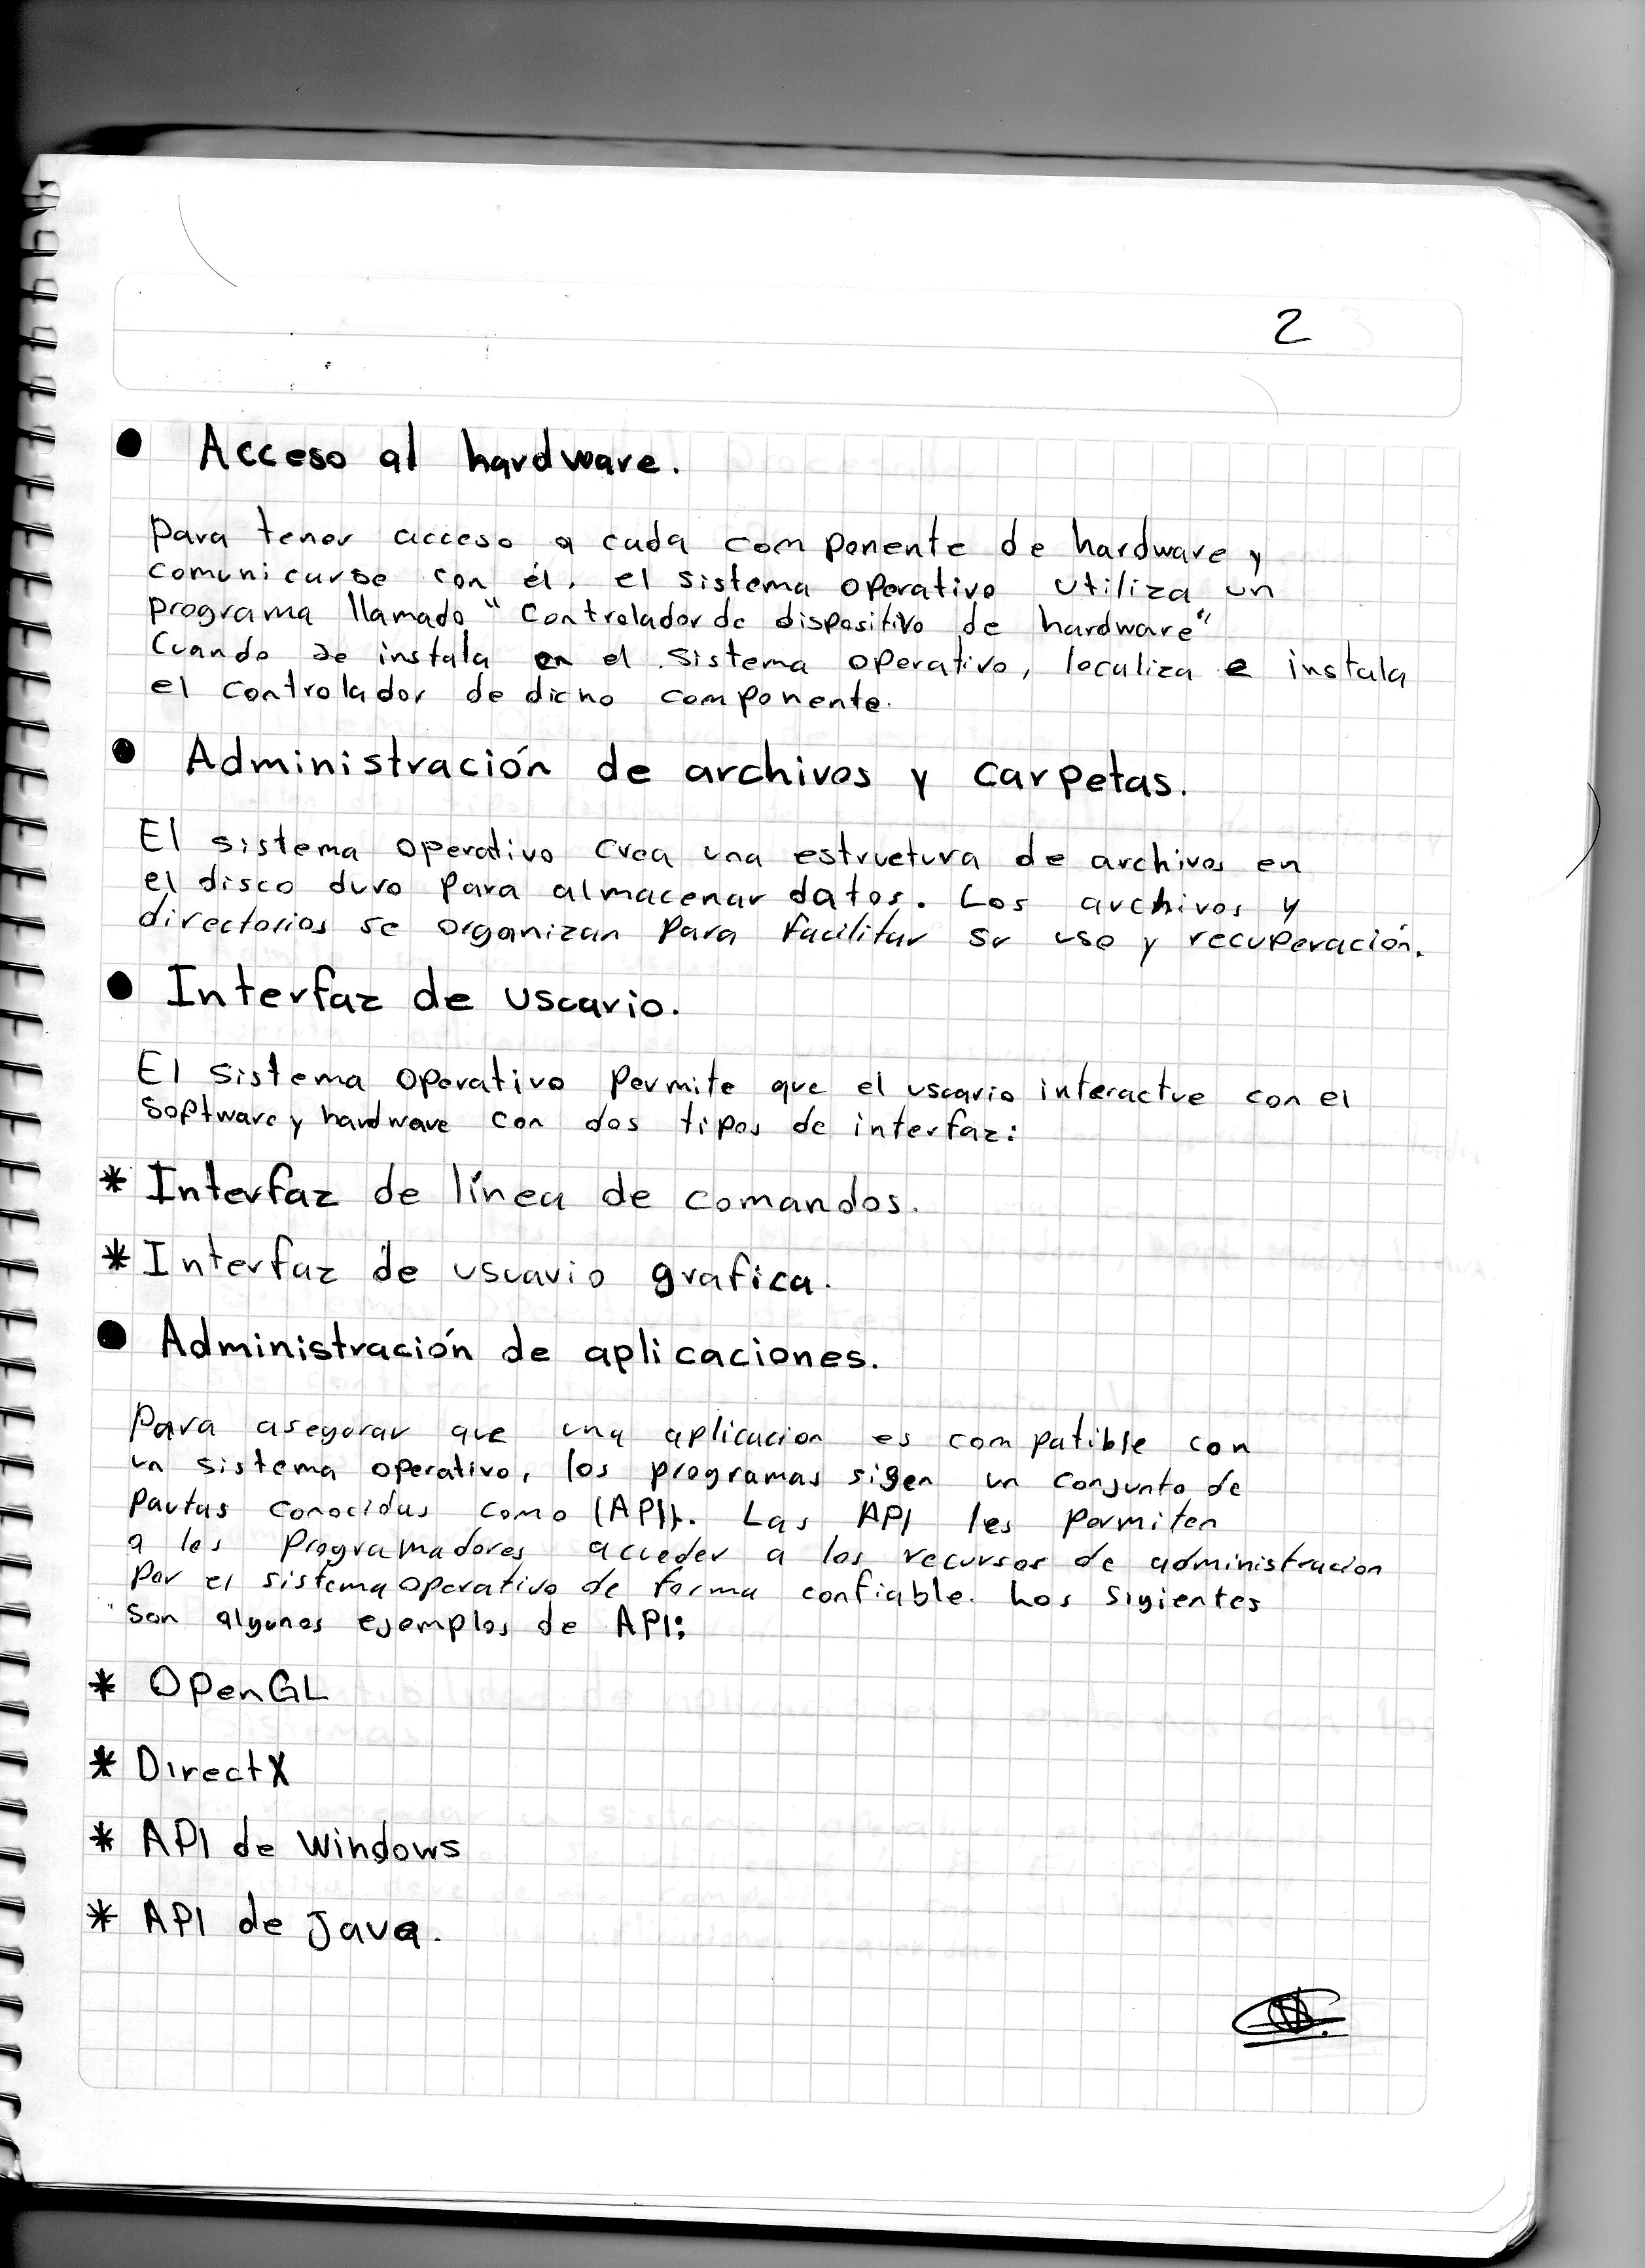 2
● Acceso al hardware.
Para tener acceso a cada componente de hardware y
comunicarse con él, el sistema operativo utiliza un
programa llamado "Controlador de dispositivo de hardware"
Cuando se instala en el sistema operativo, localiza e instala
el controlador de dicho componente.
● Administración de archivos y carpetas.
El sistema operativo crea una estructura de archivos en
el disco duro para almacenar datos. Los archivos y
directorios se organizan para facilitar su uso y recuperación.
● Interfaz de usuario.
El sistema operativo permite que el usuario interactue con el
software y hardware con dos tipos de interfaz:
* Interfaz de línea de comandos.
* Interfaz de usuario grafica.
● Administración de aplicaciones.
Para asegurar que una aplicacion es compatible con
un sistema operativo, los programas sigen un conjunto de
pautas conocidas como (API). Las API les permiten
a los programadores acceder a los recursos de administracion
por el sistema operativo de forma confiable. Los sigientes
son algunos ejemplos de API:
* OpenGL
* DirectX
* API de Windows
* API de Java.